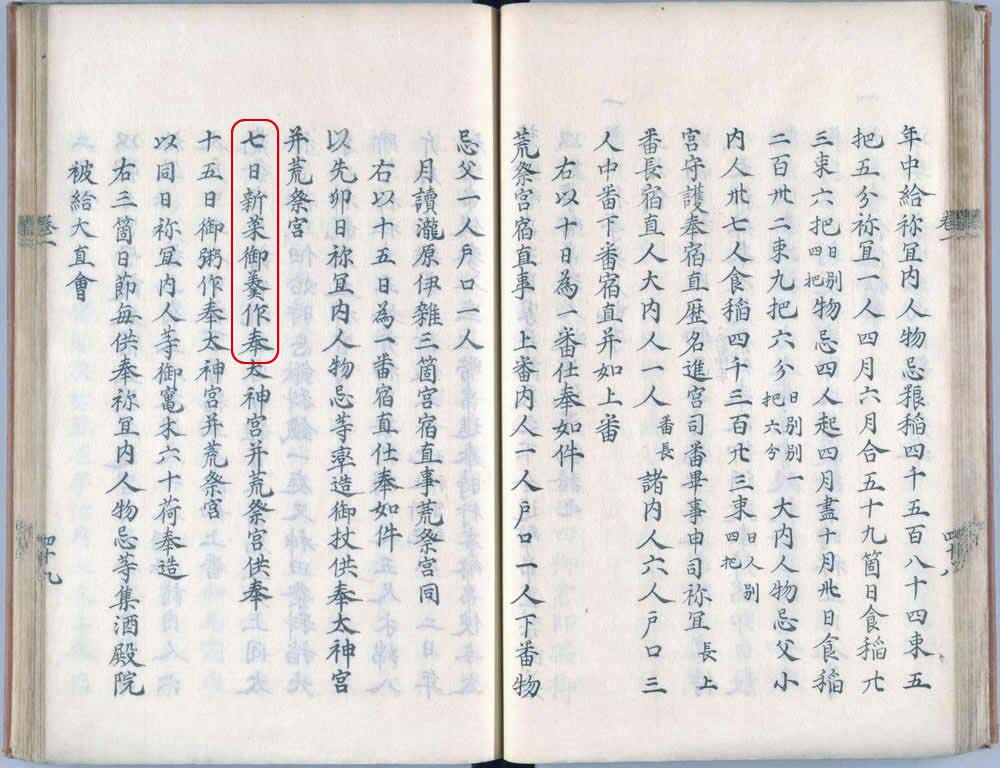 年中給祢冝内人物忌粮稲四千五百八十四束五
把五分祢冝一人四月六月合五十九箇日食稲廾
三束六把日別四把物忌四人起四月盡十月卅日食稲
二百卅二束九把六分日別別把六分一大内人物忌父小
内人卅七人食稲四千三百廾三束日人別四把
宮守護奉宿直歴名進宮司番畢事申司祢冝長上
番長宿直人大内人一人番長諸内人六人戸口三
人中番下番宿直并如上番
右以十日為一番仕奉如件
荒祭宮宿直事上番内人一人戸口一人下番物
忌父一人戸口二人
月讀瀧原伊雜三箇宮宿直事荒祭宮同
右以十五日為一番宿直仕奉如件
以先卯日祢冝内人物忌等率造御杖供奉太神宮
并荒祭宮
七日新菜御羹作奉太神宮并荒祭宮供奉
十五日御粥作奉太神宮并荒祭宮
以同日祢冝内人等御竃木六十荷奉造
右三箇日節毎供奉祢冝内人物忌等集酒殿院
被給大直會
卷一
四十八
卷一
四十九